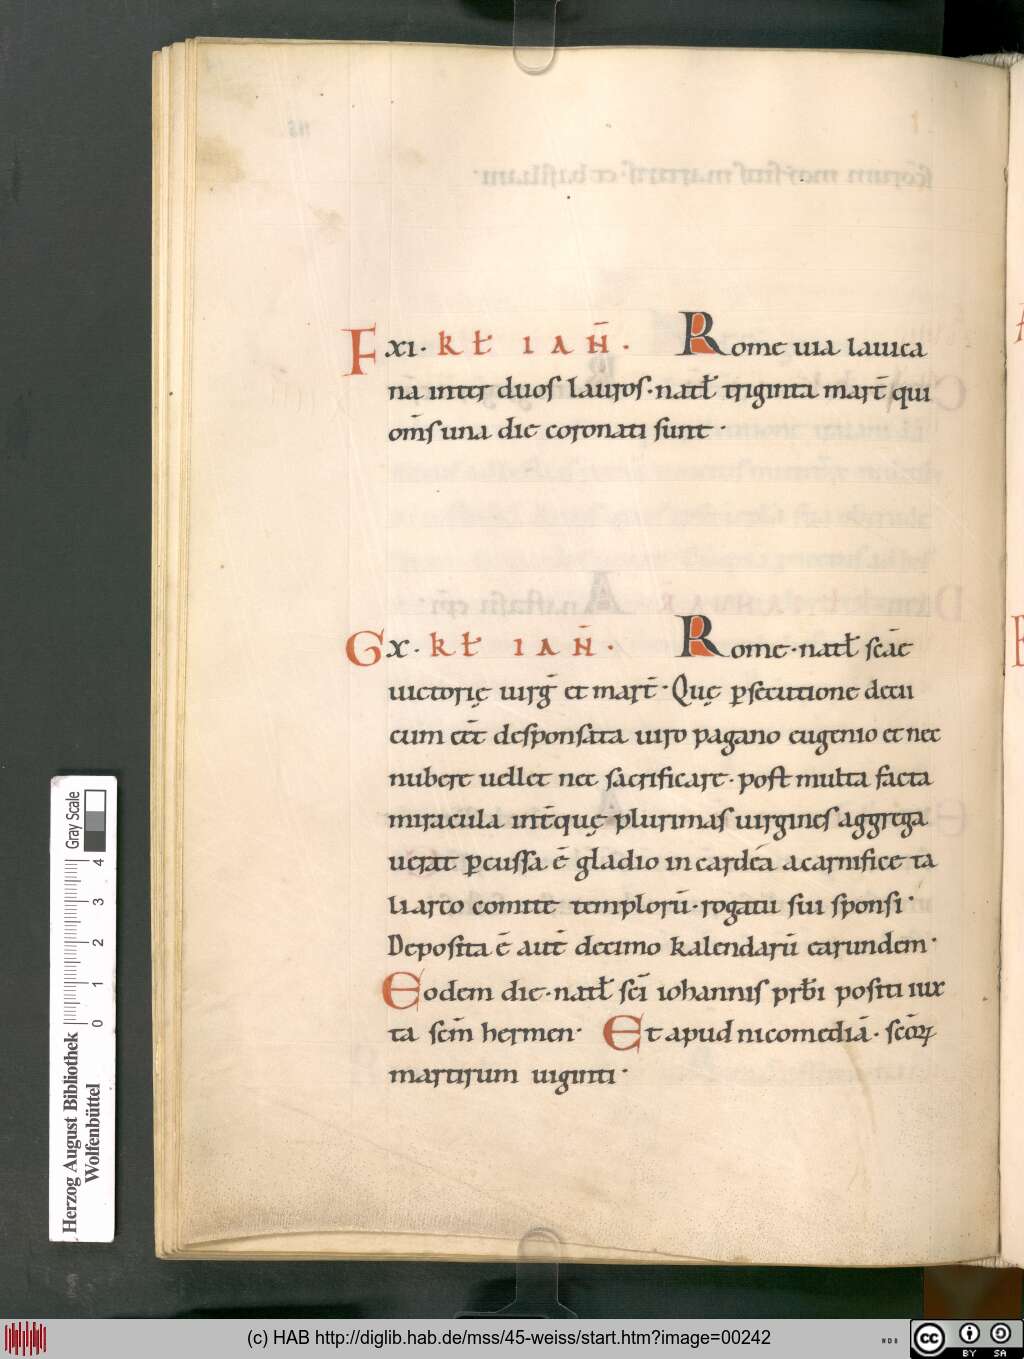 F xi· kł ian̄· Rome uia lauica
na inter duos lauros· natł triginta mart̄ qui
om̄s una die coronati sunt·
G x· kł ian̄· Rome· natł sc̄ae
uictorię uirḡ et mart̄· Quę ꝑsecutione decii
cum eēt desponsata uiro pagano eugenio et nec
nubere uellet nec sacrificare· post multa facta
miracula int̄quę plurimas uirgines aggrega
uerat ꝑcussa ē gladio in corde a carnifice ta
liarco comite templorū· rogatu sui sponsi·
Deposita ē aut̄ decimo kalendarū earundem·
Eodem die· natł sc̄i iohannis prb̄i positi iux
ta sc̄m hermen· Et apud nicomediā· sc̄oꝝ
martirum uiginti·
Gray Scale
0 1 2 3 4
Herzog August Bibliothek
Wolfenbüttel
(c) HAB http://diglib.hab.de/mss/45-weiss/start.htm?image=00242
WDB
cc BY SA